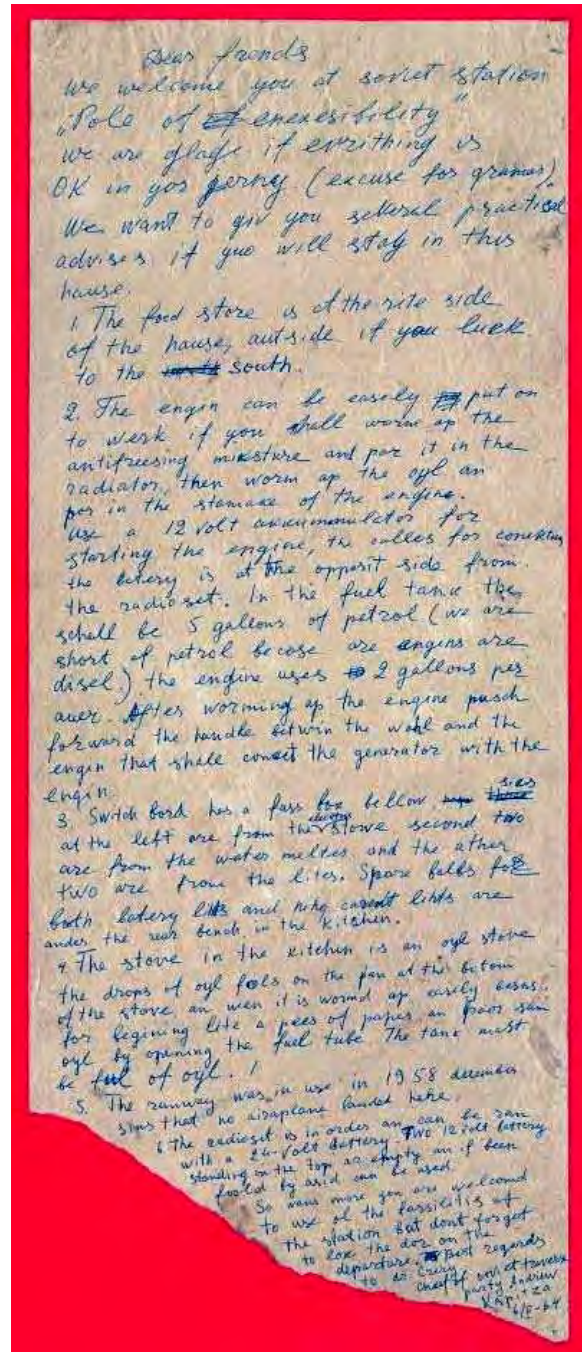 Dear friends
We welcome you at soviet station
„Pole of enexesibility"
We are glade if evrithing is
OK in yor jerny (excuse for gramar)
We want to giv you several practical
advises if yuo will stay in this
hause.
1. The food store is at the rite side
of the hause, autside if you luck
to the south.
2. The engin can be easely put on
to werk if you shall worm ap the
antifreesing miksture and por it in the
radiator, then worm ap the oyl an
por in the stamake of the engine.
Use a 12 volt akkumulator for
starting the engine, the cables for conekting
the batery is at the opposit side from
the radioset. In the fuel tank the
schall be 5 galeons of petrol (we are
short of petrol becose are engins are
disel.) the engine uses 2 gallons per
auer. After worming ap the engine pusch
forward the handle betwin the wohl and the
engin that shall conect the generator with the
engin.
3. Switch bord has a fass box bellow
at the left are from the stowe second two
are from the water melter and the ather
two are from the lites. Spare balbs for
both batery lits and are
ander the rear bench in the kitchen.
4. The stove in the kitchen is an oyl stove
the drops of oyl fols on the pan at the botom
of the stove an wen it is wormd ap easely
for begining lite a pees of paper an poor sam
oyl by opening the fuel tube. The tank mast
be ful of oyl. !
5. The runway was in use in 1958 december
sins that no airaplane landed here.
6. The radioset is in order an can be ran
with a 24-volt battery. Two 12 volt battery
standing on the top ar empty an if been
by asid can be used.
So wans more you are welcomd
to use ol the fassilitis of
the station but dont forget
to lok the dor on the
departure. Best regards
to dr. Crary
party Andrew
Kapitza